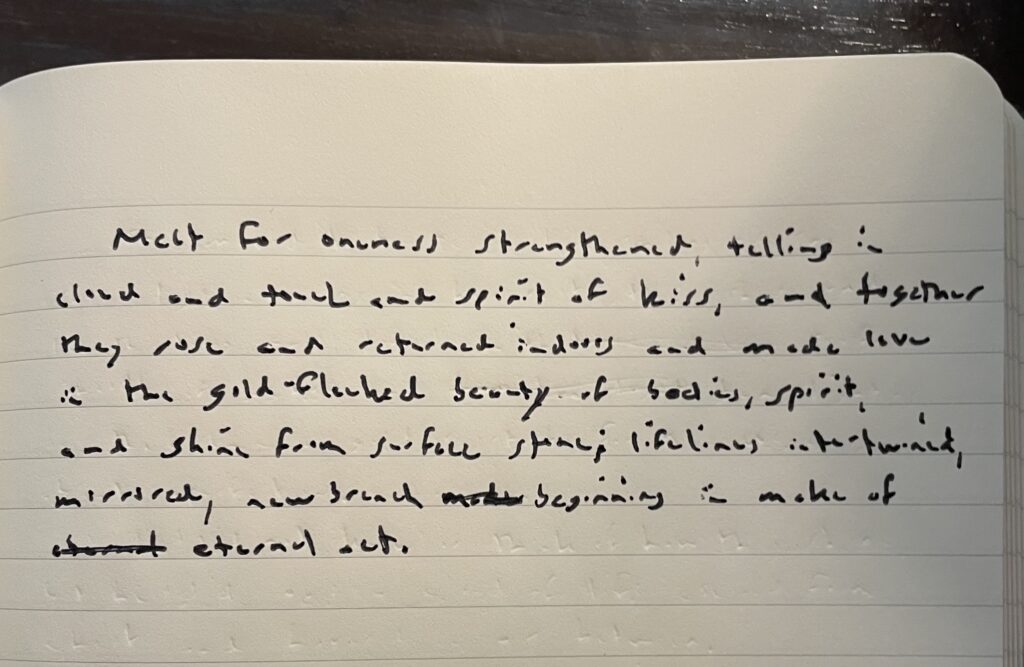 Melt for oneness strengthened, telling in
cloud and touch and spirit of kiss, and together
they rose and returned indoors and made love
in the gold-flecked beauty of bodies, spirit,
and shine from surface stones; lifelines intertwined,
mirrored, new branch beginning in make of
eternal act.